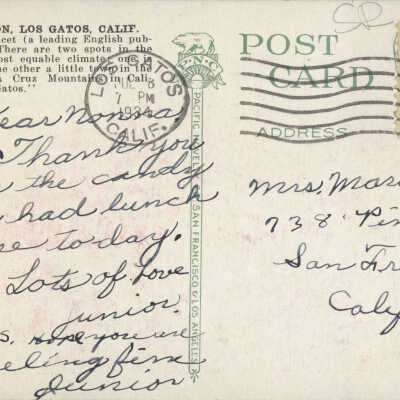 ON, LOS GATOS, CALIF.
cet (a leading English pub-
There are two spots in the
ost equable climate, one is
he other a little town in the
a Cruz Mountains in Cali-
atos."
LOS GATOS
8
7 PM
1934
CALIF.
POST
CARD
ADDRESS
PACIFIC NOVELTY SAN FRANCISCO & LOS ANGELES
P.N.C.
ear Nonna.
Thank you
the candy
had lunch
se to day.
Lots of love
Junior.
S. hope you are
eeling fine
Junior
Mrs. Mar
738 Pin
San Fr
Calif